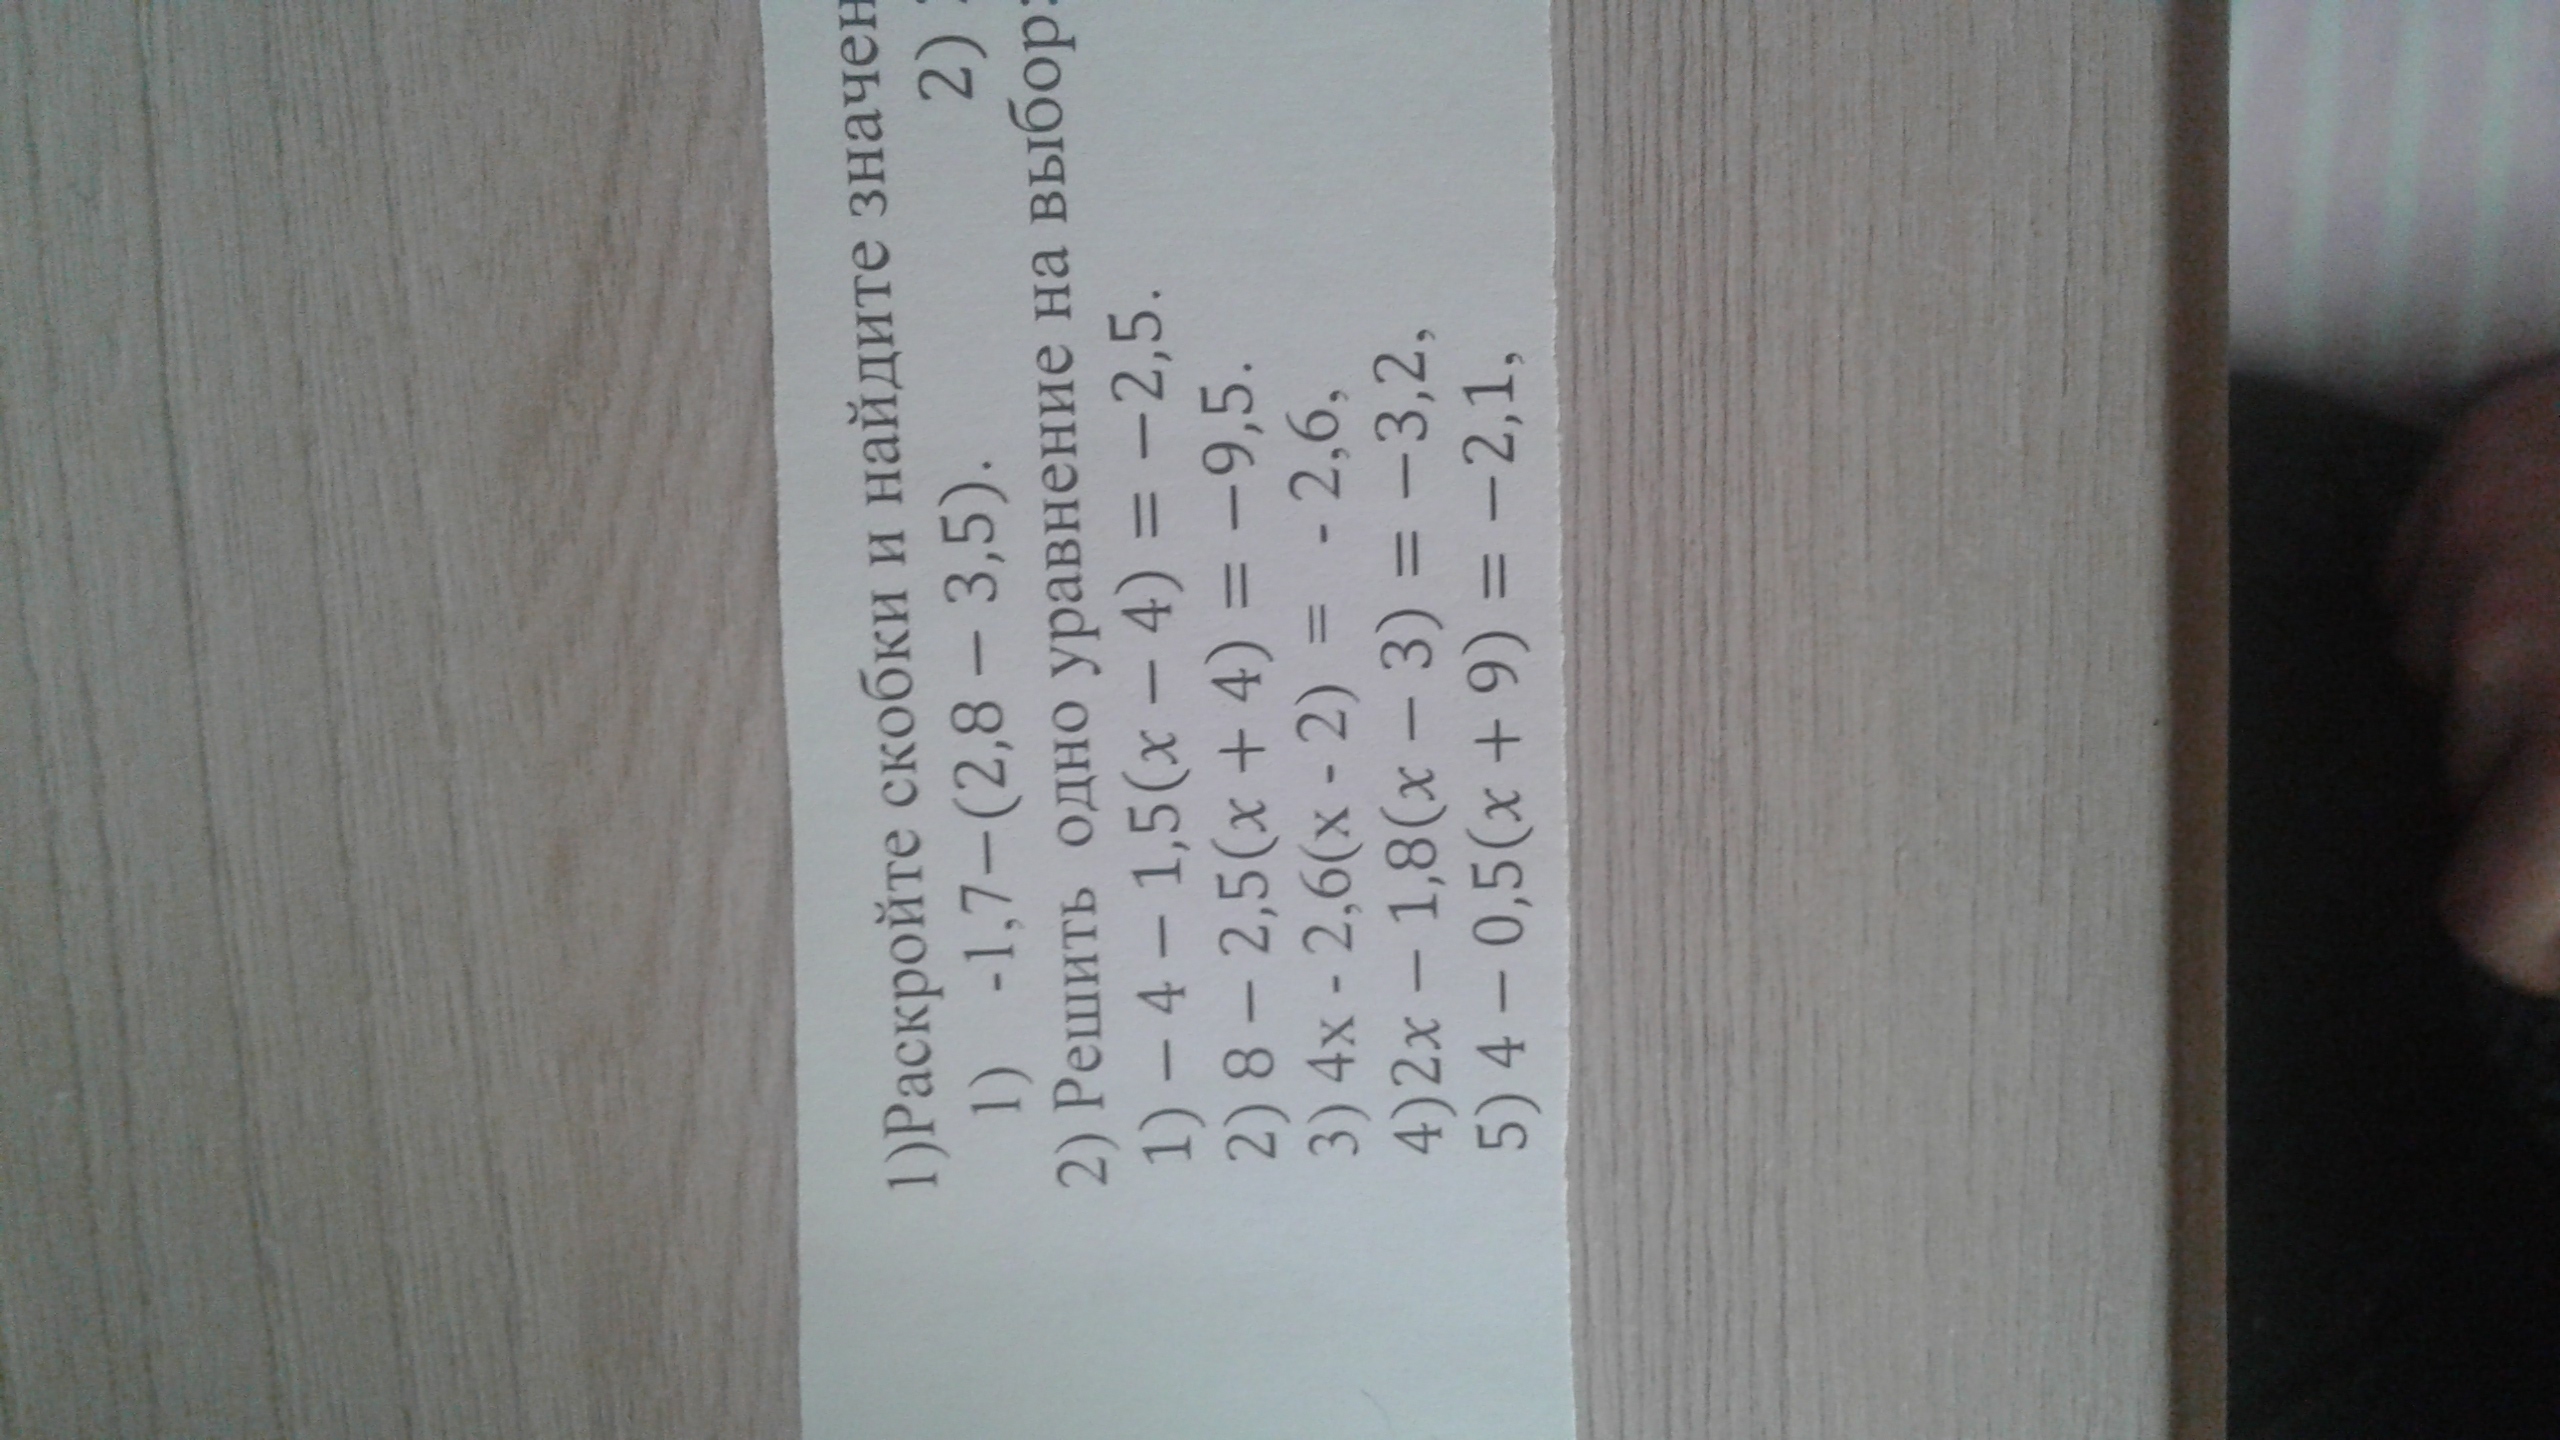 1)Раскройте скобки и найдите значен
1) -1,7−(2,8 − 3,5). 2)
2) Решить одно уравнение на выбор:
1) − 4 − 1,5(x − 4) = −2,5.
2) 8 − 2,5(x + 4) = −9,5.
3) 4x - 2,6(x - 2) = - 2,6,
4)2x − 1,8(x − 3) = −3,2,
5) 4 − 0,5(x + 9) = −2,1,